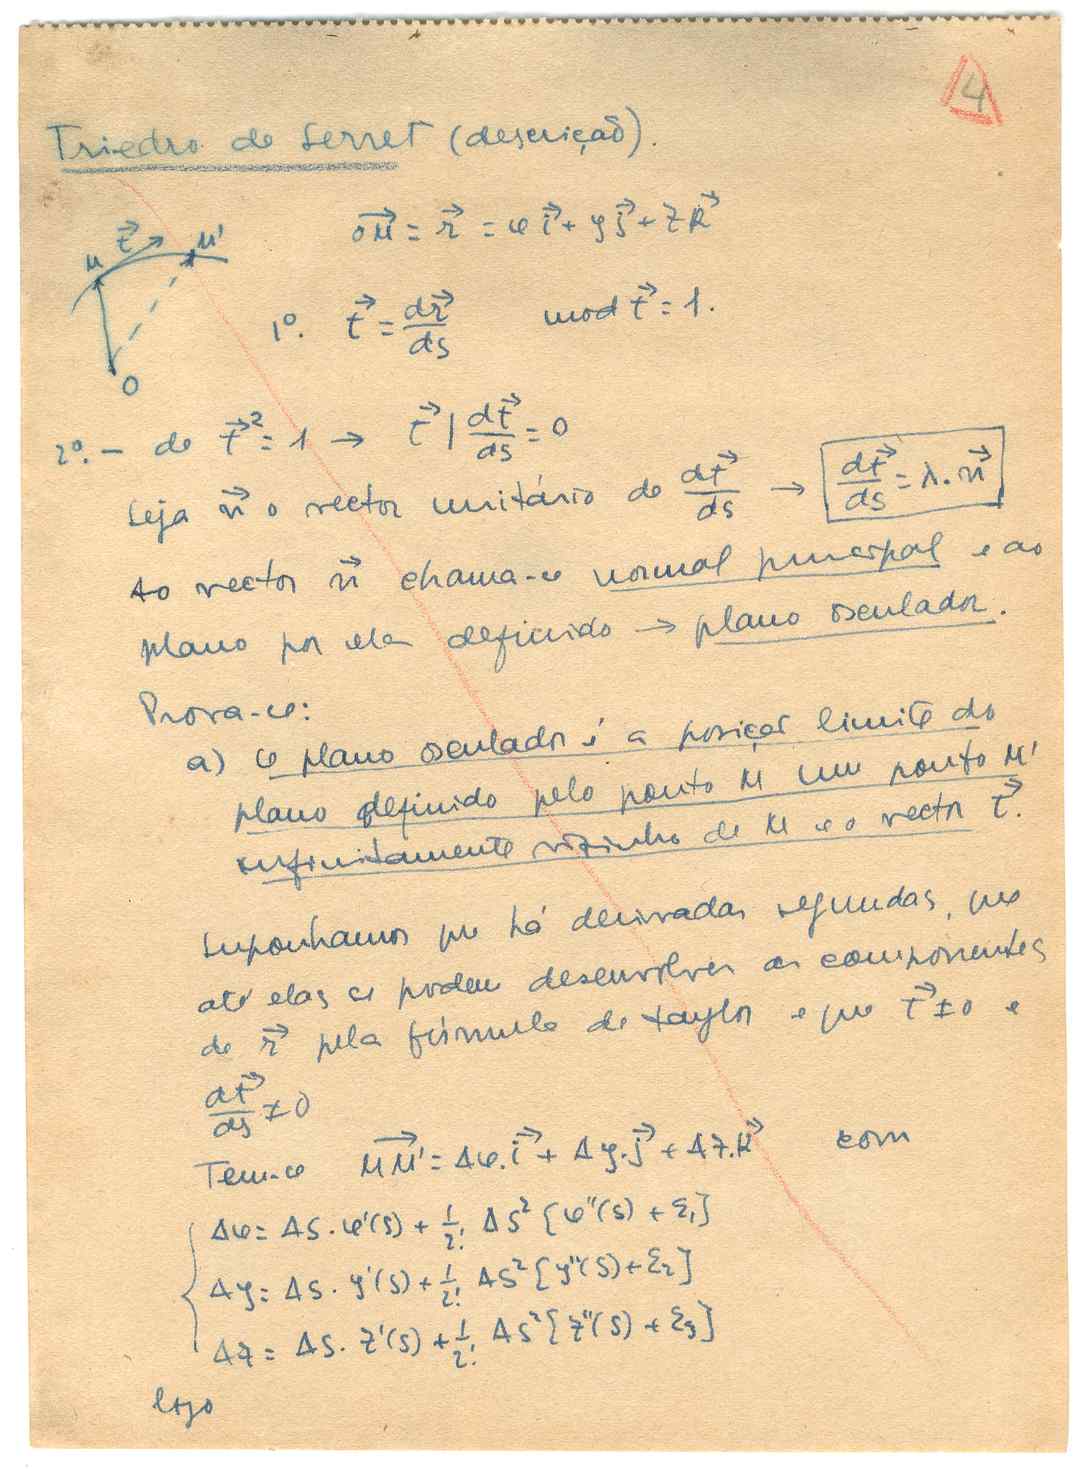 4
Triedro de Serret (descrição).
M t⃗ M'
O
OM⃗ = r⃗ = x i⃗ + y j⃗ + z k⃗
1º. t⃗ = dr⃗/ds mod t⃗ = 1.
2º. – de t⃗² = 1 → t⃗ | dt⃗/ds = 0
Seja n⃗ o vector unitário de dt⃗/ds → dt⃗/ds = λ. n⃗
Ao vector n⃗ chama-se normal principal e ao
plano por eles definido → plano osculador.
Prova-se:
a) O plano osculador é a posição limite do
plano definido pelo ponto M um ponto M'
infinitamente vizinho de M e o vector t⃗.
Suponhamos que há derivadas segundas, que
até elas se podem desenvolver as componentes
de r⃗ pela fórmula de Taylor e que t⃗ ≠ 0 e
dt⃗/ds ≠ 0
Tem-se MM'⃗ = Δx. i⃗ + Δy. j⃗ + Δz. k⃗ com
Δx = Δs. x'(s) + 1/2! Δs² [x''(s) + ε₁]
Δy = Δs. y'(s) + 1/2! Δs² [y''(s) + ε₂]
Δz = Δs. z'(s) + 1/2! Δs² [z''(s) + ε₃]
logo